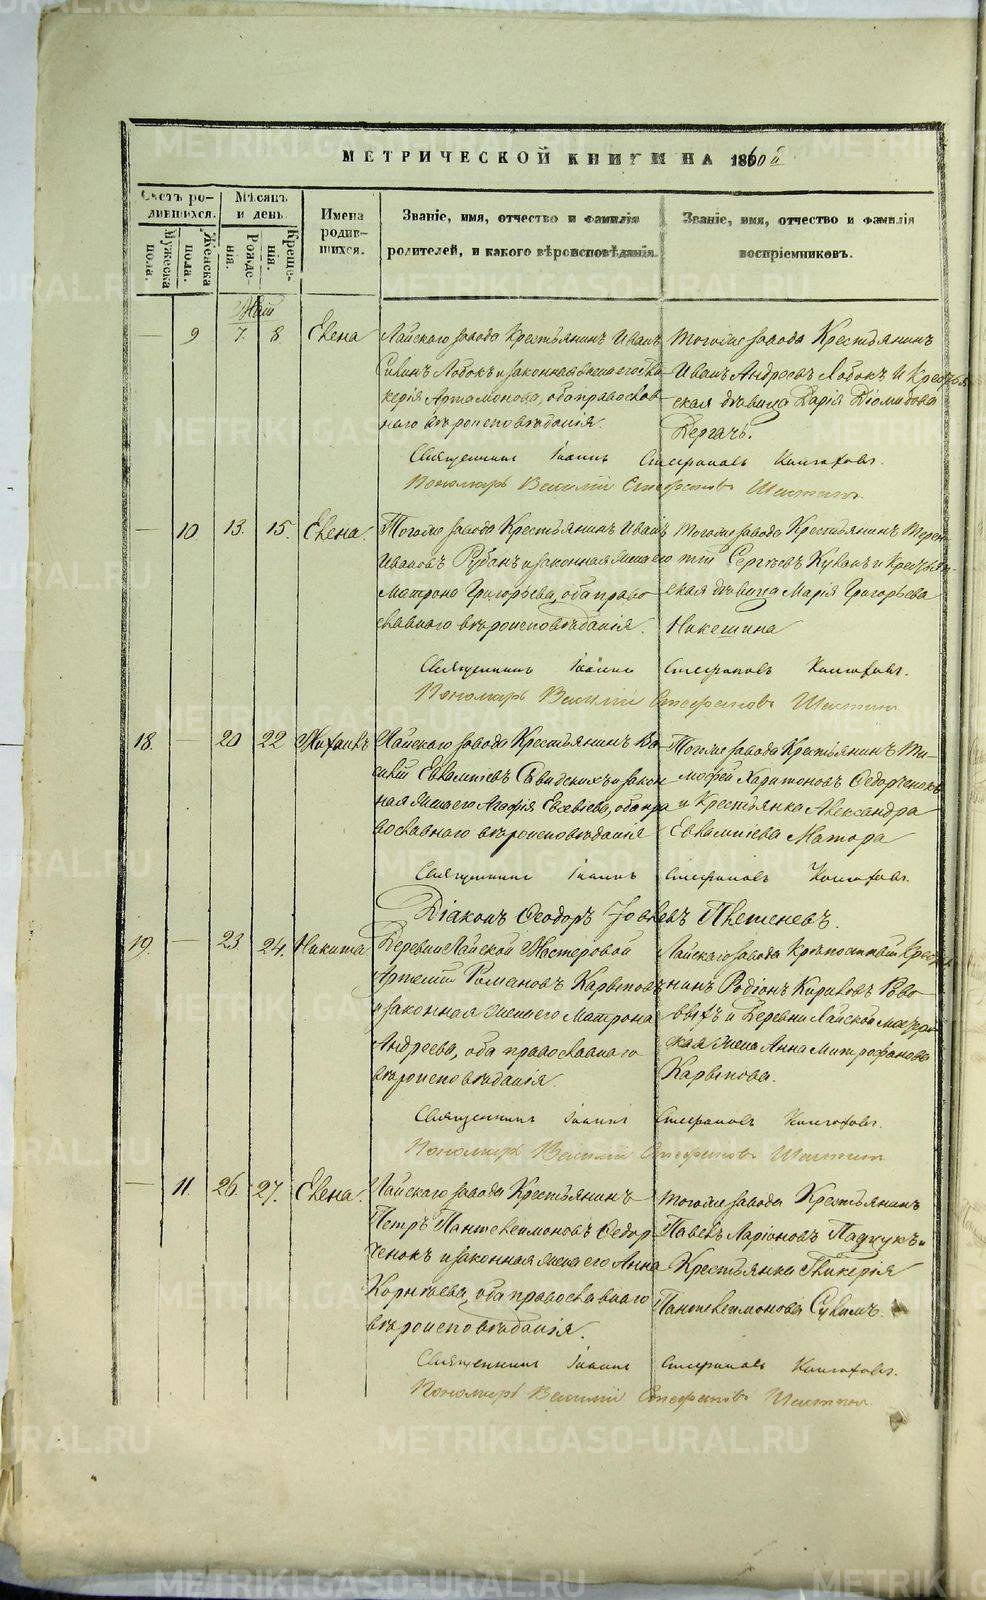 МЕТРИЧЕСКОЙ КНИГИ НА 1860й
Счетъ родившихся.
Мужеска пола.
Женска пола.
Мѣсяцъ и день
Рожденія.
Крещенія.
Имена родившихся.
Званіе, имя, отчество и фамилія
родителей, и какого вѣроисповѣданія.
Званіе, имя, отчество и фамилія
воспріемниковъ.
Май
— 9 7. 8. Елена
Лайскаго завода Крестьянинъ Иванъ
Лобокъ и законная жена его
керія Артамонова, оба православ
наго вѣроисповѣданія.
тогоже завода Крестьянинъ
Иванъ Андреевъ Лобокъ и
ская дѣвица Дарія Діомидова
Дергачь.
Священникъ Іоаннъ Стефановъ
Пономарь Василій Стефановъ
— 10 13. 15. Елена.
Тогоже завода Крестьянинъ Иванъ
Ивановъ Рубанъ и законная жена его
Матрона Григорьева, оба право
славнаго вѣроисповѣданія.
тогоже завода Крестьянинъ
тій Сергѣевъ и
ская дѣвица Марія Григорьева
Никешина
Священникъ Іоаннъ Стефановъ
Пономарь Василій Стефановъ
18. — 20 22 Михаилъ
Лайскаго завода Крестьянинъ Ва
силій Евлампіевъ и закон
ная жена его Агафія Евсевіева, оба пра
вославнаго вѣроисповѣданія
Тогоже завода Крестьянинъ Ти-
мофей Харитоновъ Федорченокъ
и Крестьянка Александра
Евлампіева
Священникъ Іоаннъ Стефановъ
Діаконъ Феодоръ Іовлевъ
19. — 23 24. Никита
Деревни Лайской Мастеровой
Артемій Романовъ Карповъ
и законная жена его Матрона
Андреева, оба православнаго
вѣроисповѣданія.
Лайскаго завода
нинъ Родіонъ Кириловъ
и Деревни Лайской
ская жена Анна Митрофанова
Карпова.
Священникъ Іоаннъ Стефановъ
Пономарь Василій Стефановъ
— 11. 26. 27. Елена.
Лайскаго завода Крестьянинъ
Петръ Пантелеимоновъ Федор
ченокъ и законная жена его Анна
Корнѣева, оба православнаго
вѣроисповѣданія.
тогоже завода Крестьянинъ
Павелъ Ларіоновъ и
Крестьянка Гликерія
Пантелеимонова
Священникъ Іоаннъ Стефановъ
Пономарь Василій Стефановъ
METRIKI.GASO-URAL.RU